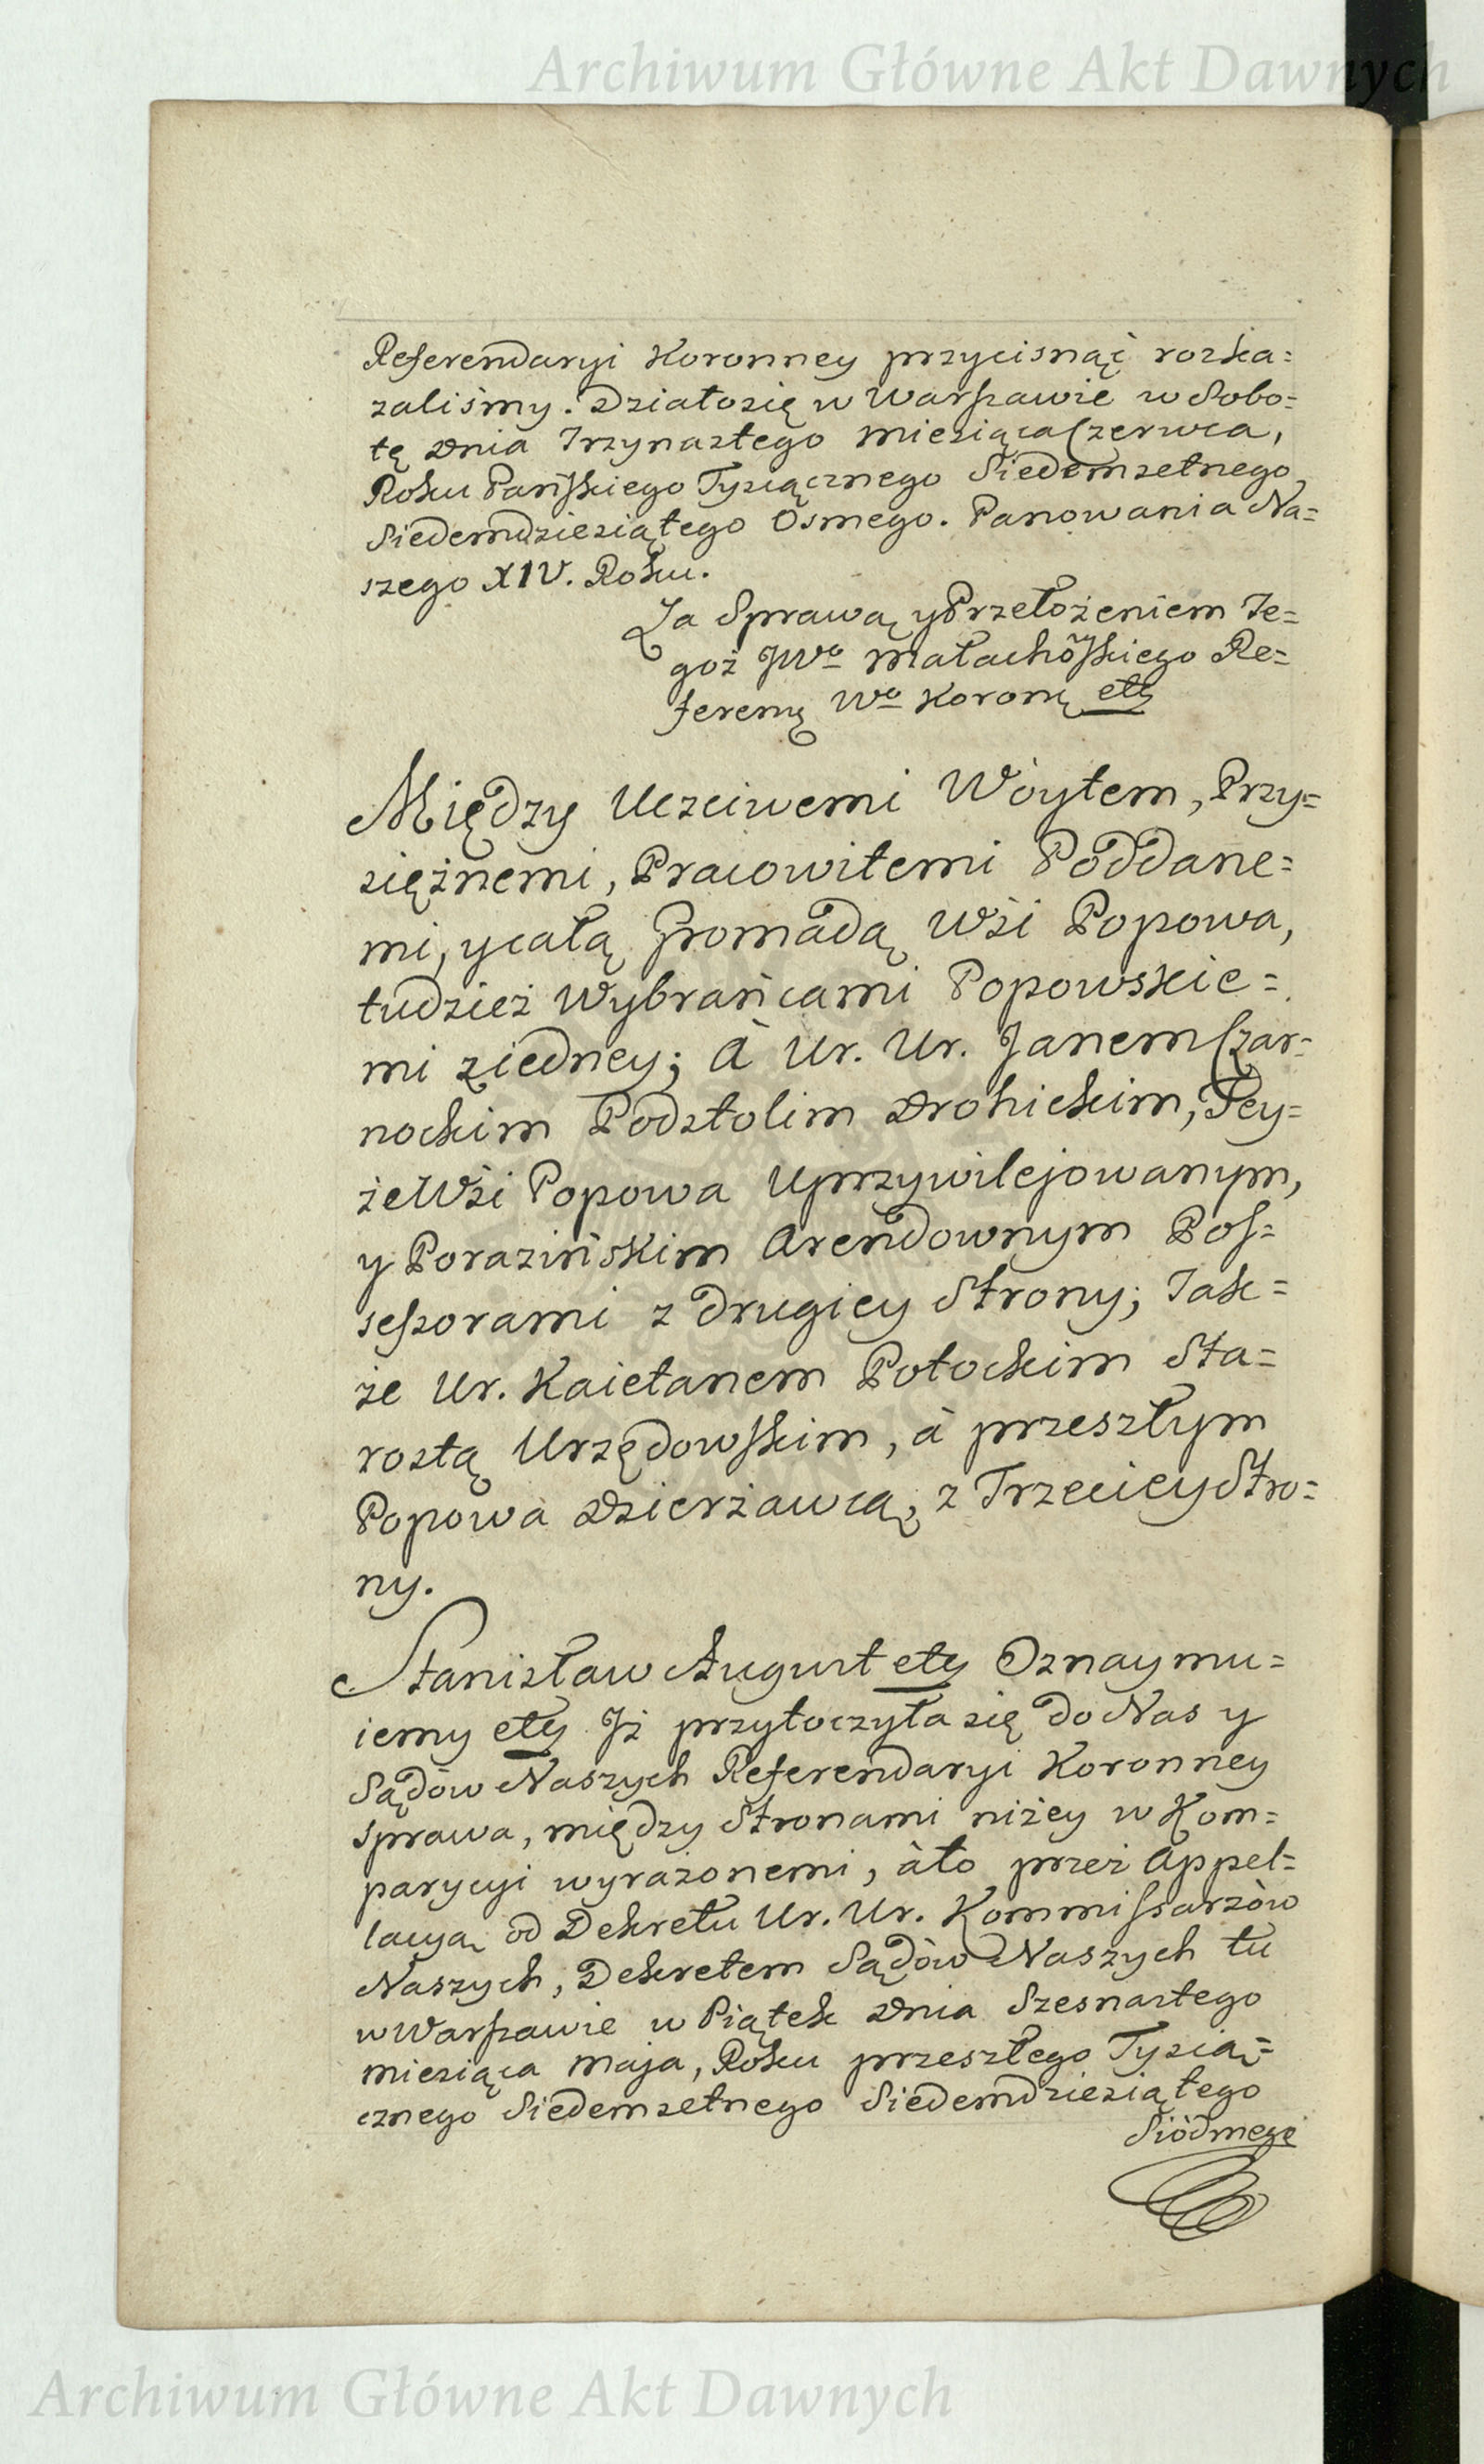 Archiwum Główne Akt Dawnych
Referendaryi Koronney przycisnąć rozka=
zaliśmy. Działosię w Warszawie w Sobo=
tę Dnia Trzynastego miesiąca Czerwca,
Roku Pańskiego Tysiącznego Siedemsetnego
Siedemdziesiątego Osmego. Panowania Na=
szego XIV. Roku.
Za Sprawą y Przełożeniem Te=
goż JWo Małachowskiego Re=
feren Wo Koronn etc
Między Uczciwemi Wóytem, Przy=
siężnemi, Pracowitemi Poddane=
mi, y całą Gromadą Wsi Popowa,
tudzież Wybrańcami Popowskie=
mi z iedney; à Ur. Ur. Janem Czar=
nockim Podstolim Drohickim, Tey=
że Wsi Popowa Uprzywilejowanym,
y Porazińskim Arendownym Pos=
sessorami z drugiey Strony; Tak=
że Ur. Kaietanem Potockim Sta=
rostą Urzędowskim, à przeszłym
Popowa Dzierżawcą, z Trzeciey Stro=
ny.
Stanisław August etc Oznaymu=
iemy etc Iż przytoczyła się do Nas y
Sądów Naszych Referendaryi Koronney
sprawa, między Stronami niżey w Kom=
parycyi wyrażonemi, à to przez Appel=
lacyą od Dekretu Ur. Ur. Kommissarzów
Naszych, Dekretem Sądów Naszych tu
w Warszawie w Piątek Dnia Szesnastego
miesiąca Maja, Roku przeszłego Tysią=
cznego Siedemsetnego Siedemdziesiątego
Siódmego
Archiwum Główne Akt Dawnych